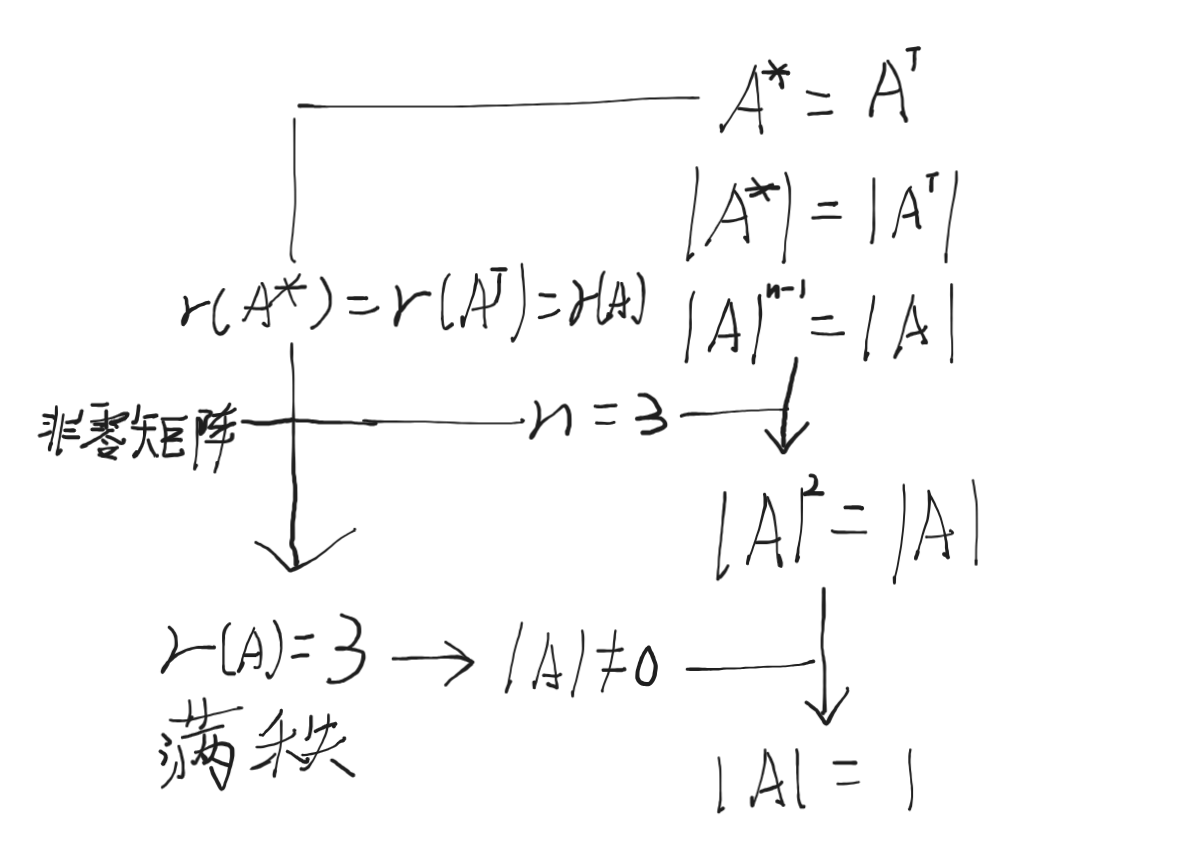 A* = Aᵀ
|A*| = |Aᵀ|
r(A*) = r(Aᵀ) = r(A)
|A|ⁿ⁻¹ = |A|
非零矩阵
n = 3
|A|² = |A|
r(A) = 3 → |A| ≠ 0
满秩
|A| = 1